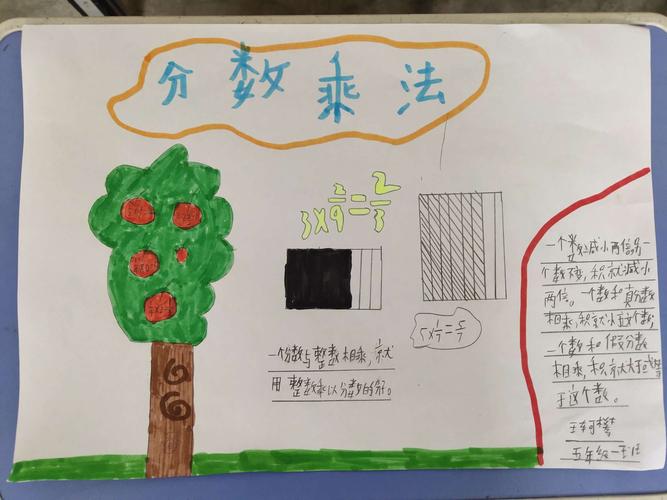 分数乘法
3×2/9=2/3
5×1/7=5/7
一个分数与整数相乘，就
用整数乘以分数的分。
一个数减小两倍另一
个数不变，积就减小
两倍。一个数和真分数
相乘，积就小这个数，
一个数和假分数
相乘，积就大于或等
于这个数。
五年级一班